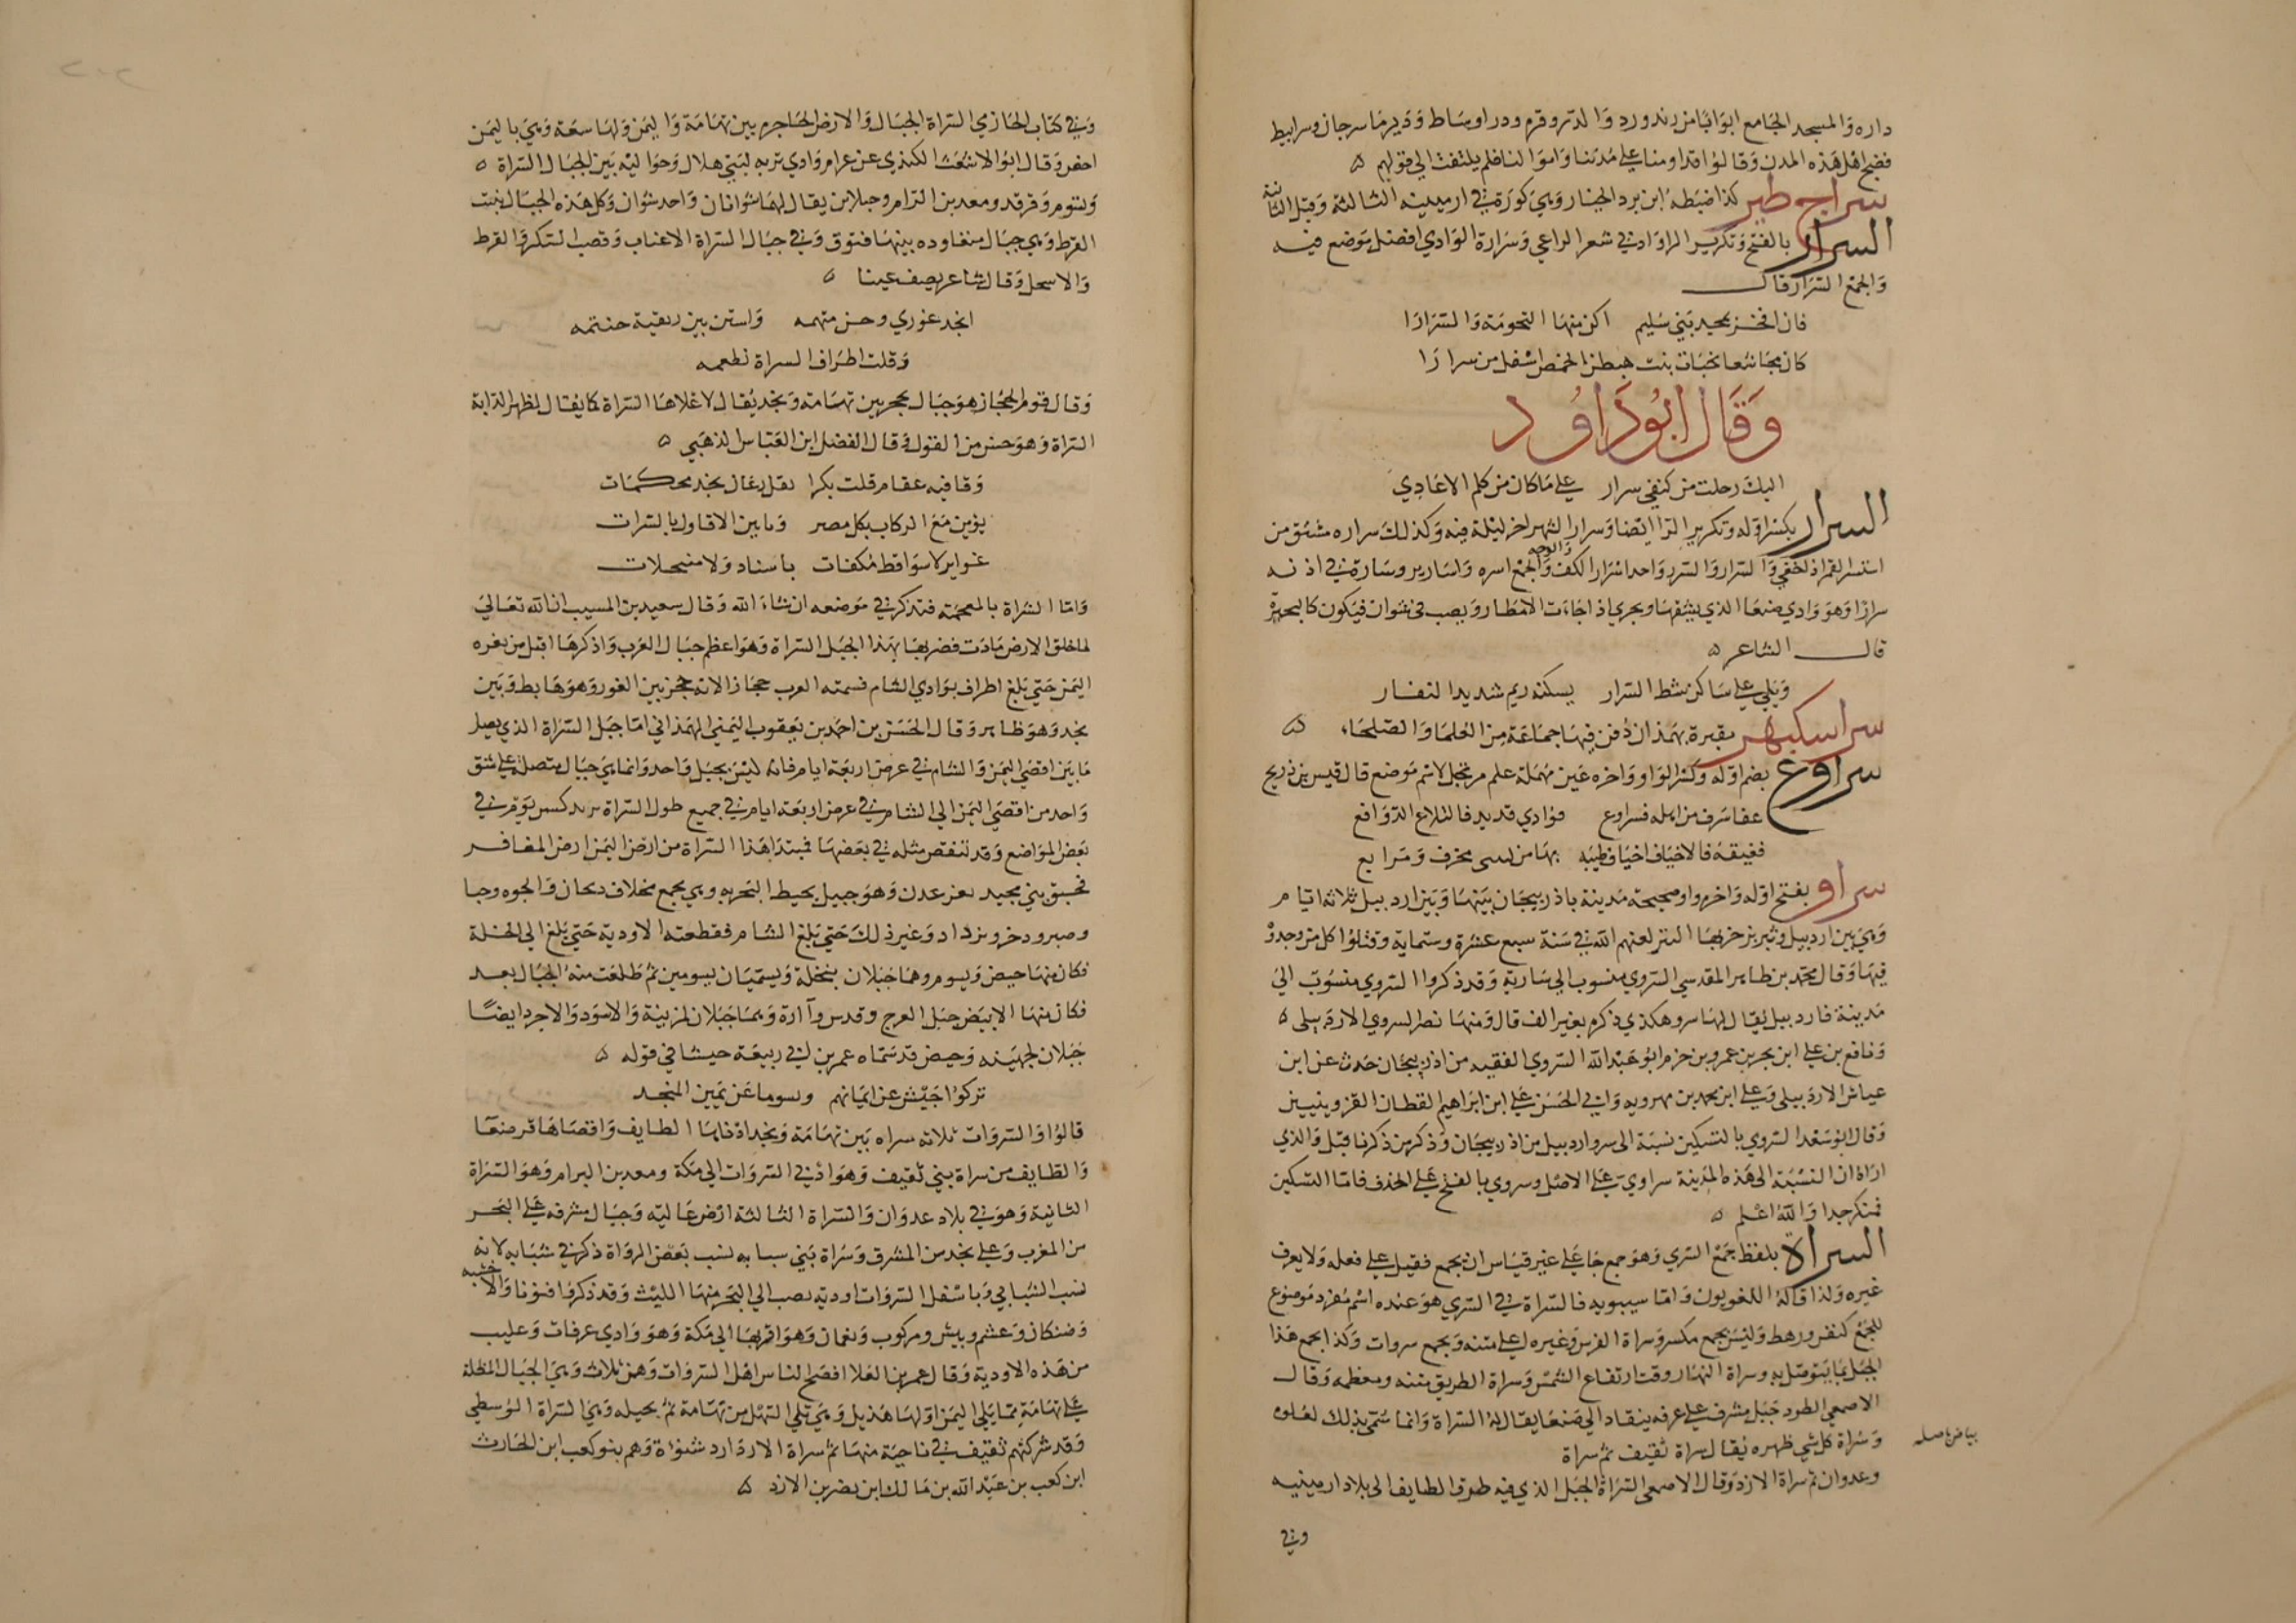 داره والمسجد الجامع ابوابا من زندورد والدتروقره ودراوساط ودير ماسرجان وسرابيط
فضج اهل هذه المدن وقالوا قد اومنا على مدننا واموالنا فلم يلتفت الى قولهم ه
سراج طير كذا ضبطه ابن برد الخيار وهي كورة في ارمينيه الثالثة وقيل الثانية
السرار بالفتح وتكرير الراواد في شعر الراعي وسرارة الوادي افضل موضع فيه
والجمع السرار قال
فان افخر بمجد بني سليم اكن منها التخومة والسرارا
كان مجاشعا نخبات بنت هبطن الخمص اسفل من سرارا
وقال ابو داود
اليك رحلت من كنفي سرار على ما كان من كلم الاعادي
السرار بكسر اوله وتكرير الرا ايضا وسرار الشهر اخر ليلة فيه وكذلك سراره مشتق من
استسر القمر اذ اخفي والسرار والسرر واحد اسرار الكف والوجه والجمع اسره واسارير وسارة في اذنه
سرارا وهو وادي صنعا الذي يشقها ويجري اذ اجاءت الامطار ويصب في سنوان فيكون كالبحيرة
قال الشاعر ه
ويلي على ساكن شط السرار يسكنه ريم شديد النفار
سراسكبهر مقبرة بهمذان دفن فيها جماعة من العلما والصلحاء ه
سراوع بضم اوله وكسر الواو واخره عين مهملة علم مرتجل لاسم موضع قال قيس بن ذريح
عفا سرف من اهله فسراوع فوادي قديد فالتلاع الدوافع
فغيقة فالاخياف اخياف ظبية بها من لبينى مخرف ومرابع
سراو بفتح اوله واخره واو صحيحة مدينة باذربيجان بينها وبين اردبيل ثلاثة ايام
وهي بين اردبيل وتبريز خربها التتر لعنهم الله في سنة سبع عشرة وستماية وقتلوا كل من وجدوه
فيها وقال محمد بن طاهر المقدسي السروي منسوب الى سارية وقد ذكروا السروي منسوب الى
مدينة فاردبيل يقال لها سرو هكذي ذكره بغير الف قال ومنها نصر السروي الاردبيلى ه
ونافع بن علي ابن بحر بن عمرو بن حزم ابو عبد الله السروي الفقيه من اذربيجان حدث عن ابن
عياش الاردبيلى وعلي ابن محمد بن مهرويه وابي الحسن علي ابن ابراهيم القطان القزوينيين
وقال ابو سعد السروي بالتسكين نسبة الى سرو اردبيل من اذربيجان وذكر من ذكرنا قبل والذي
اراه ان النسبة الى هذه المدينة سراوي على الاصل وسروي بالفتح على الحذف فاما التسكين
فمنكر جدا والله اعلم ه
السراة بلفظ جمع السري وهو جمع جا على غير قياس ان يجمع فعيل على فعله ولا يعرف
غيره ولذا قاله اللغويون واما سيبويه فالسراة في السري هو عنده اسم مفرد موضوع
للجمع كنفر ورهط وليس بجمع مكسر وسراة الفرس وغيره اعلي متنه ويجمع سروات وكذا يجمع هذا
الجبل بما يتوصل به وسراة النهار وقت ارتفاع الشمس وسراة الطريق متنه ومعظمه وقال
الاصمعي الطود جبل مشرف على عرفه ينقاد الى صنعا يقال له السراة وانما سمي بذلك لعلوه
وسراة كل شي ظهره يقال سراة ثقيف ثم سراة
بياض باصله
وعدوان ثم سراة الازد وقال الاصمعي السراة الجبل الذي فيه طرق الطايف الى بلاد ارمينيه
وفي
وفي كتاب الحازمي السراة الجبال والارض الحاجزه بين تهامة واليمن ولها سعة وهي باليمن
احفر وقال ابو الاشعث الكندي عن عرام وادي تربه لبني هلال وحواليه بين الجبال السراة ه
ويسوم وفرقد ومعدن البرام وجبلان يقال لهما شوانان واحد شوان وكل هذه الجبال ينبت
القرظ وهي جبال متقاوده بينها فتوق وفي جبال السراة الاعناب وقصب السكر والقرظ
والاسحل وقال شاعر يصف عينا ه
انجد غوري وحن متهمه واستن بين ريقيه حنتمه
وقلت اطراف السراة نطعمه
وقال قوم الحجاز هو جبال يحجز بين تهامة ونجد يقال لاعلاها السراة كما يقال لظهر الدابة
السراة وهو حسن من القول وقال الفضل ابن العباس الذهبي ه
وقافيه عقام قلت بكرا نقل رعان نجد محكمات
يؤبن مع الركاب بكل مصر وياتين الاقاول بالسرات
غواير لا سواقط مكفات باسناد ولا منتحلات
واما الشراة بالمعجمة فتذكر في موضعه ان شاء الله وقال سعيد بن المسيب ان الله تعالى
لما خلق الارض مادت فضربها بهذا الجبل السراة وهو اعظم جبال العرب واذكرها اقبل من ثغره
اليمن حتي بلغ اطراف بوادي الشام فسمته العرب حجازا لانه حجز بين الغور وهو هابط وبين
نجد وهو ظاهر وقال الحسن بن احمد بن يعقوب اليمني الهمذاني اما جبل السراة الذي يصل
ما بين اقصي اليمن والشام في عرض اربعة ايام فانه ليس بجبل واحد وانما هي جبال متصلة على شق
واحد من اقصي اليمن الى الشام في عرض اربعة ايام في جميع طول السراة يزيد كسر يوم في
بعض المواضع وقد تنقص مثله في بعضها فمبتدا هذا السراة من ارض اليمن ارض المعافر
فحيق بني مجيد نعر عدن وهو جبيل يحيط البحر به وهي يجمع مخلاف دبحان والجوه وجبا
وصبر وذخر وبرداد وغير ذلك حتي بلغ الشام فقطعته الاودية حتي بلغ الى النخلة
فكان منها حيض ويسوم وهما جبلان بنخلة ويسميان يسومين ثم طلعت منه الجبال بعد
فكان منها الابيض جبل العرج وقدس وآارة وهما جبلان لمزينة والاسود والاجرد ايضا
جبلان لجهينه وحيض قد سماه عمر بن ابي ربيعة حيشا في قوله ه
تركوا خيش عن ايمانهم ويسوما عن يمين المنجد
قالوا والسروات ثلاثه سراه بين تهامة ونجد ادناها الطايف واقصاها قرب صنعا
والطايف من سراة بني ثقيف وهو ادنى السروات الى مكة ومعدن البرام وهو السراة
الثانية وهو في بلاد عدوان والسراة الثالثة ارض عاليه وجبال مشرفه على البحر
من المغرب وعلى نجد من المشرق وسراة بني سبابه نسب بعض الرواة ذكر في شبابه لانه
نسب الشبابي وباسفل السروات اوديه تصب الى البحر منها الليث وقد ذكر قنونا والاحسبه
وضنكان وعشم وبيش ومركوب ونعمان وهو اقربها الى مكة وهو وادي عرفات وعليب
من هذه الاودية وقال عمر بن العلا افصح الناس اهل السروات وهن ثلاث وهي الجبال المطلة
على تهامة مما يلي اليمن اولها هذيل وهي تلي السهل من تهامة ثم بجيله وهي السراة الوسطي
وقد شركتهم ثقيف في ناحية منها ثم سراة الازد ازد شنواة وهم بنو كعب ابن الحارث
ابن كعب بن عبد الله بن مالك ابن نصر بن الازد ه